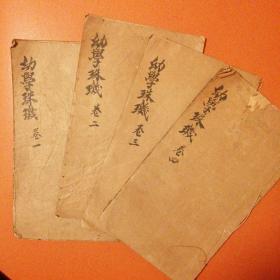 幼學珠璣 卷一
幼學珠璣 卷二
幼學珠璣 卷三
幼學珠璣 卷四